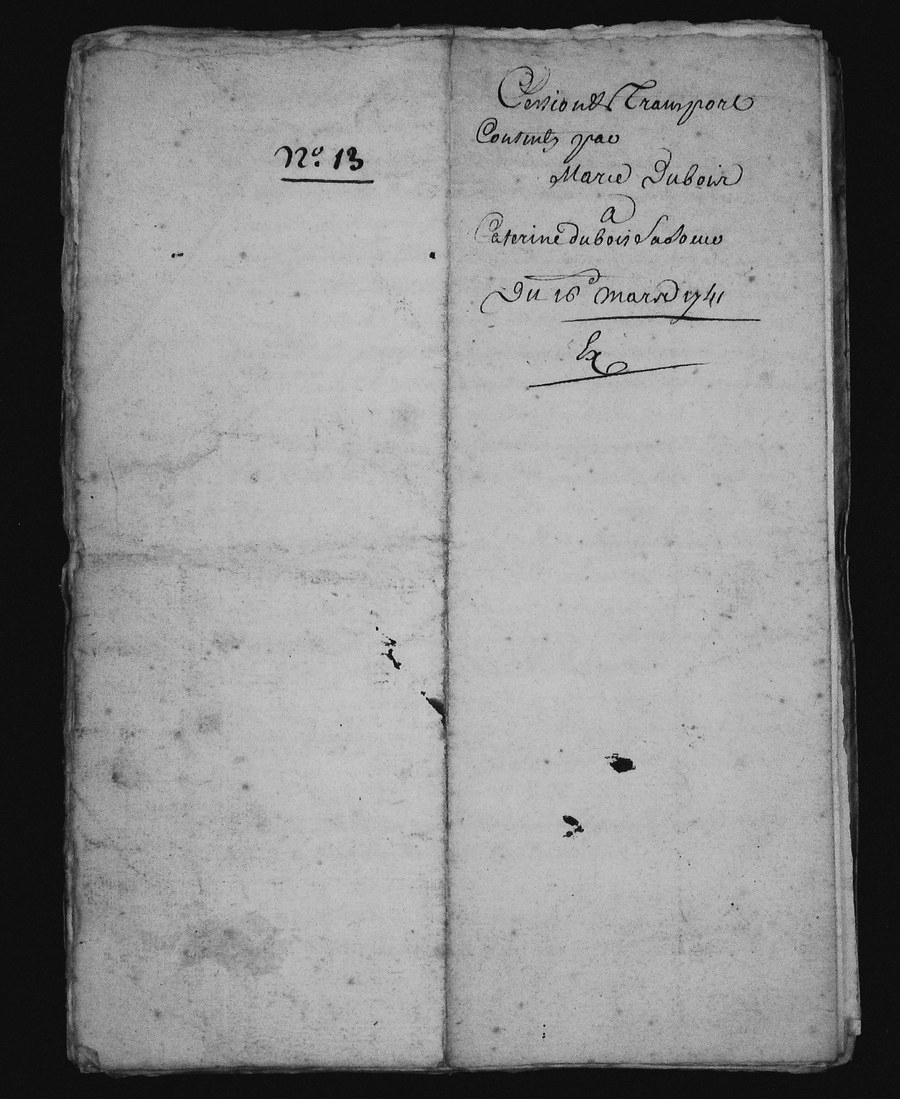 No. 13
Cession & Transport
Consenty par
Marie Dubois
a
Caterine dubois Sa Soeur
Du 16 mars 1741
Ex